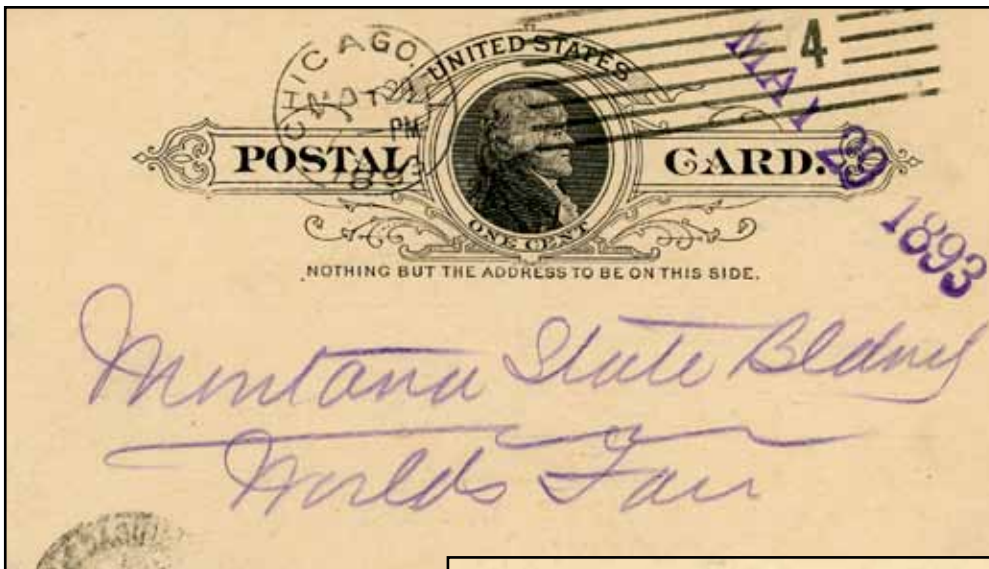 CHICAGO.
PM
UNITED STATES
4
MAY 29 1893
POSTAL CARD.
ONE CENT
NOTHING BUT THE ADDRESS TO BE ON THIS SIDE.
Montana State Bldng
Worlds Fair